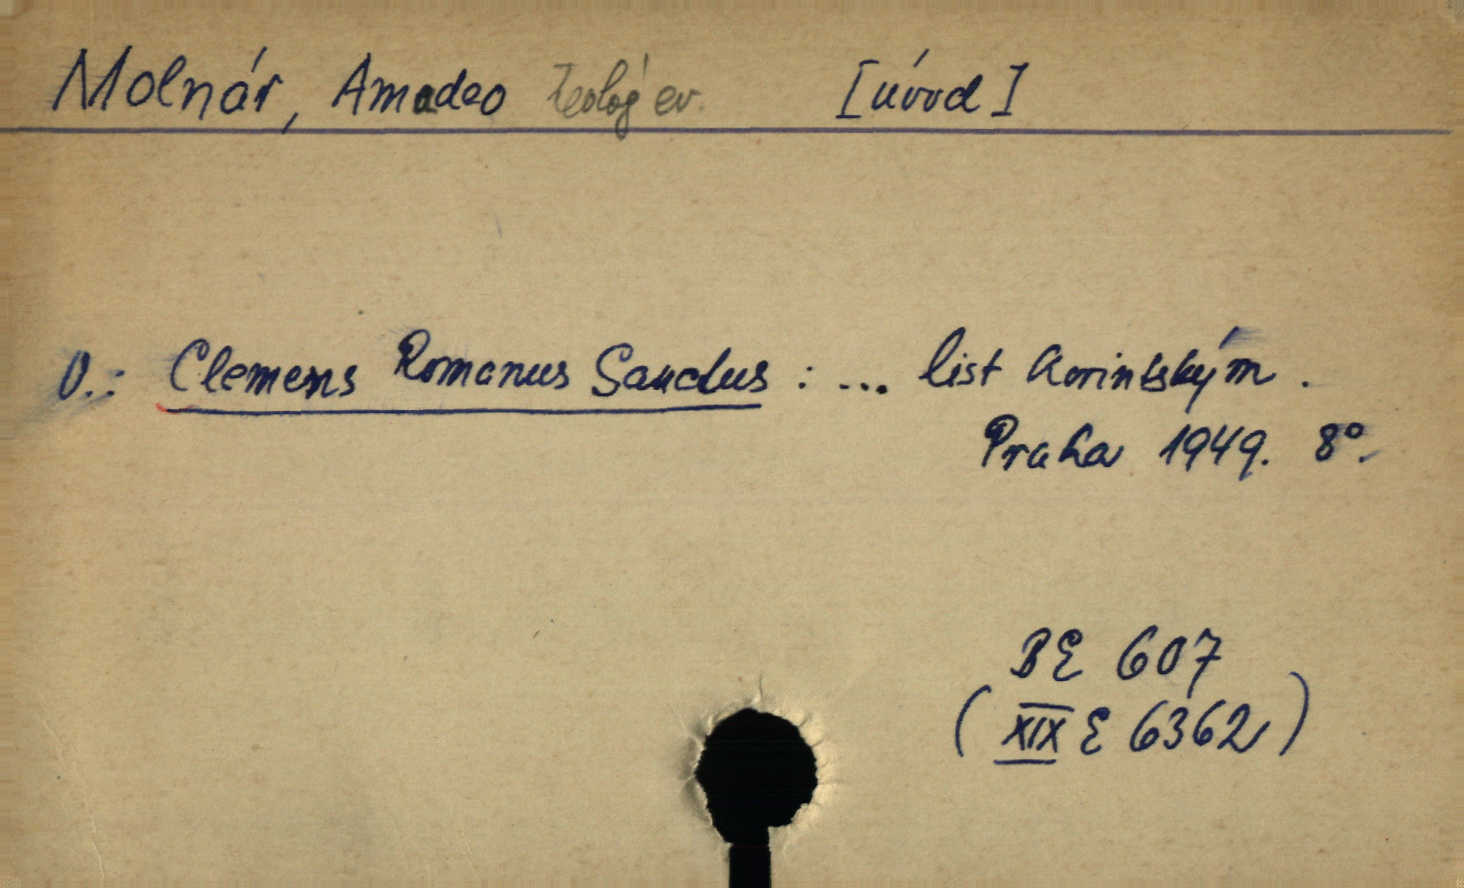 Molnár, Amadeo teológ ev. [úvod]
V.: Clemens Romanus Sanctus : ... list Korintským.
Praha 1949. 8°.
BE 607
(XIX E 6362)